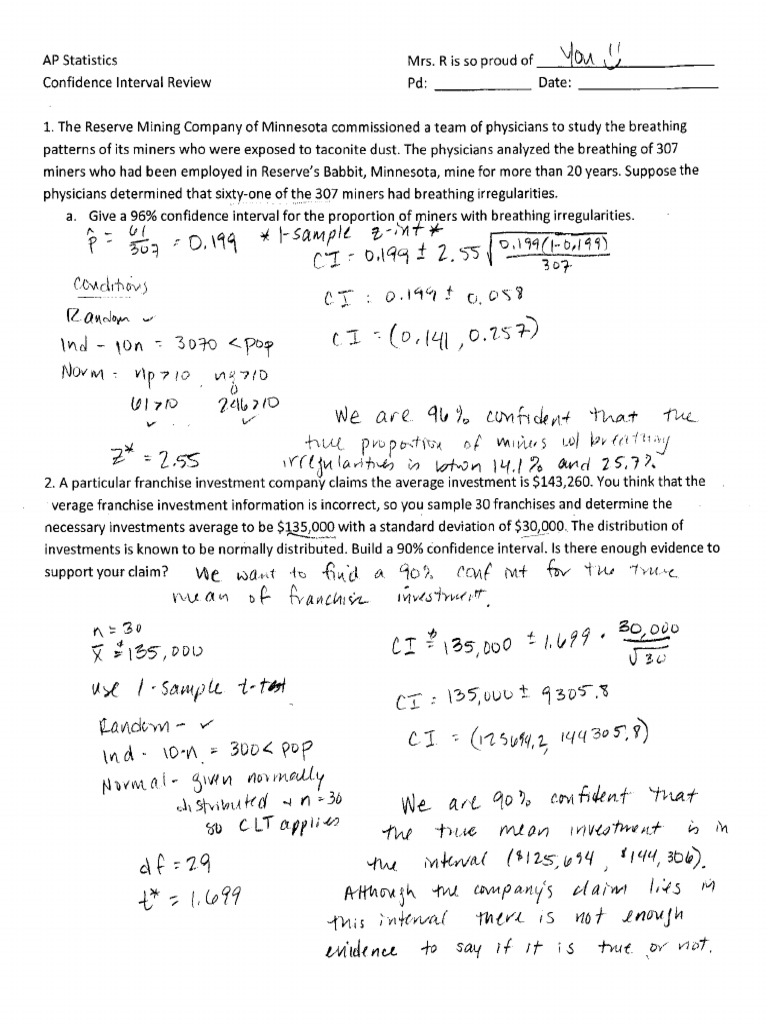 AP Statistics
Mrs. R is so proud of You
Confidence Interval Review
Pd: Date:
1. The Reserve Mining Company of Minnesota commissioned a team of physicians to study the breathing
patterns of its miners who were exposed to taconite dust. The physicians analyzed the breathing of 307
miners who had been employed in Reserve's Babbit, Minnesota, mine for more than 20 years. Suppose the
physicians determined that sixty-one of the 307 miners had breathing irregularities.
a. Give a 96% confidence interval for the proportion of miners with breathing irregularities.
p̂ = 61/307 = 0.199 * 1-sample z-int *
CI = 0.199 ± 2.55 √(0.199(1-0.199)/307)
Conditions
CI : 0.199 ± 0.058
Random ✓
CI = (0.141, 0.257)
Ind - 10n = 3070 < pop
Norm = np > 10 nq > 10
61 > 10 246 > 10
✓ ✓
We are 96% confident that the
true proportion of miners w/ breathing
z* = 2.55
irregularities is btwn 14.1% and 25.7%
2. A particular franchise investment company claims the average investment is $143,260. You think that the
verage franchise investment information is incorrect, so you sample 30 franchises and determine the
necessary investments average to be $135,000 with a standard deviation of $30,000. The distribution of
investments is known to be normally distributed. Build a 90% confidence interval. Is there enough evidence to
support your claim? We want to find a 90% conf int for the true
mean of franchise investment.
n = 30
x̄ = $135,000
CI = $135,000 ± 1.699 · 30,000/√30
use 1-sample t-test
CI : 135,000 ± 9305.8
Random - ✓
CI = (125694.2, 144305.8)
Ind - 10·n = 300 < pop
Normal - given normally
distributed + n = 30
so CLT applies
We are 90% confident that
the true mean investment is in
df = 29
the interval ($125,694, $144,306).
t* = 1.699
Although the company's claim lies in
this interval there is not enough
evidence to say if it is true or not.